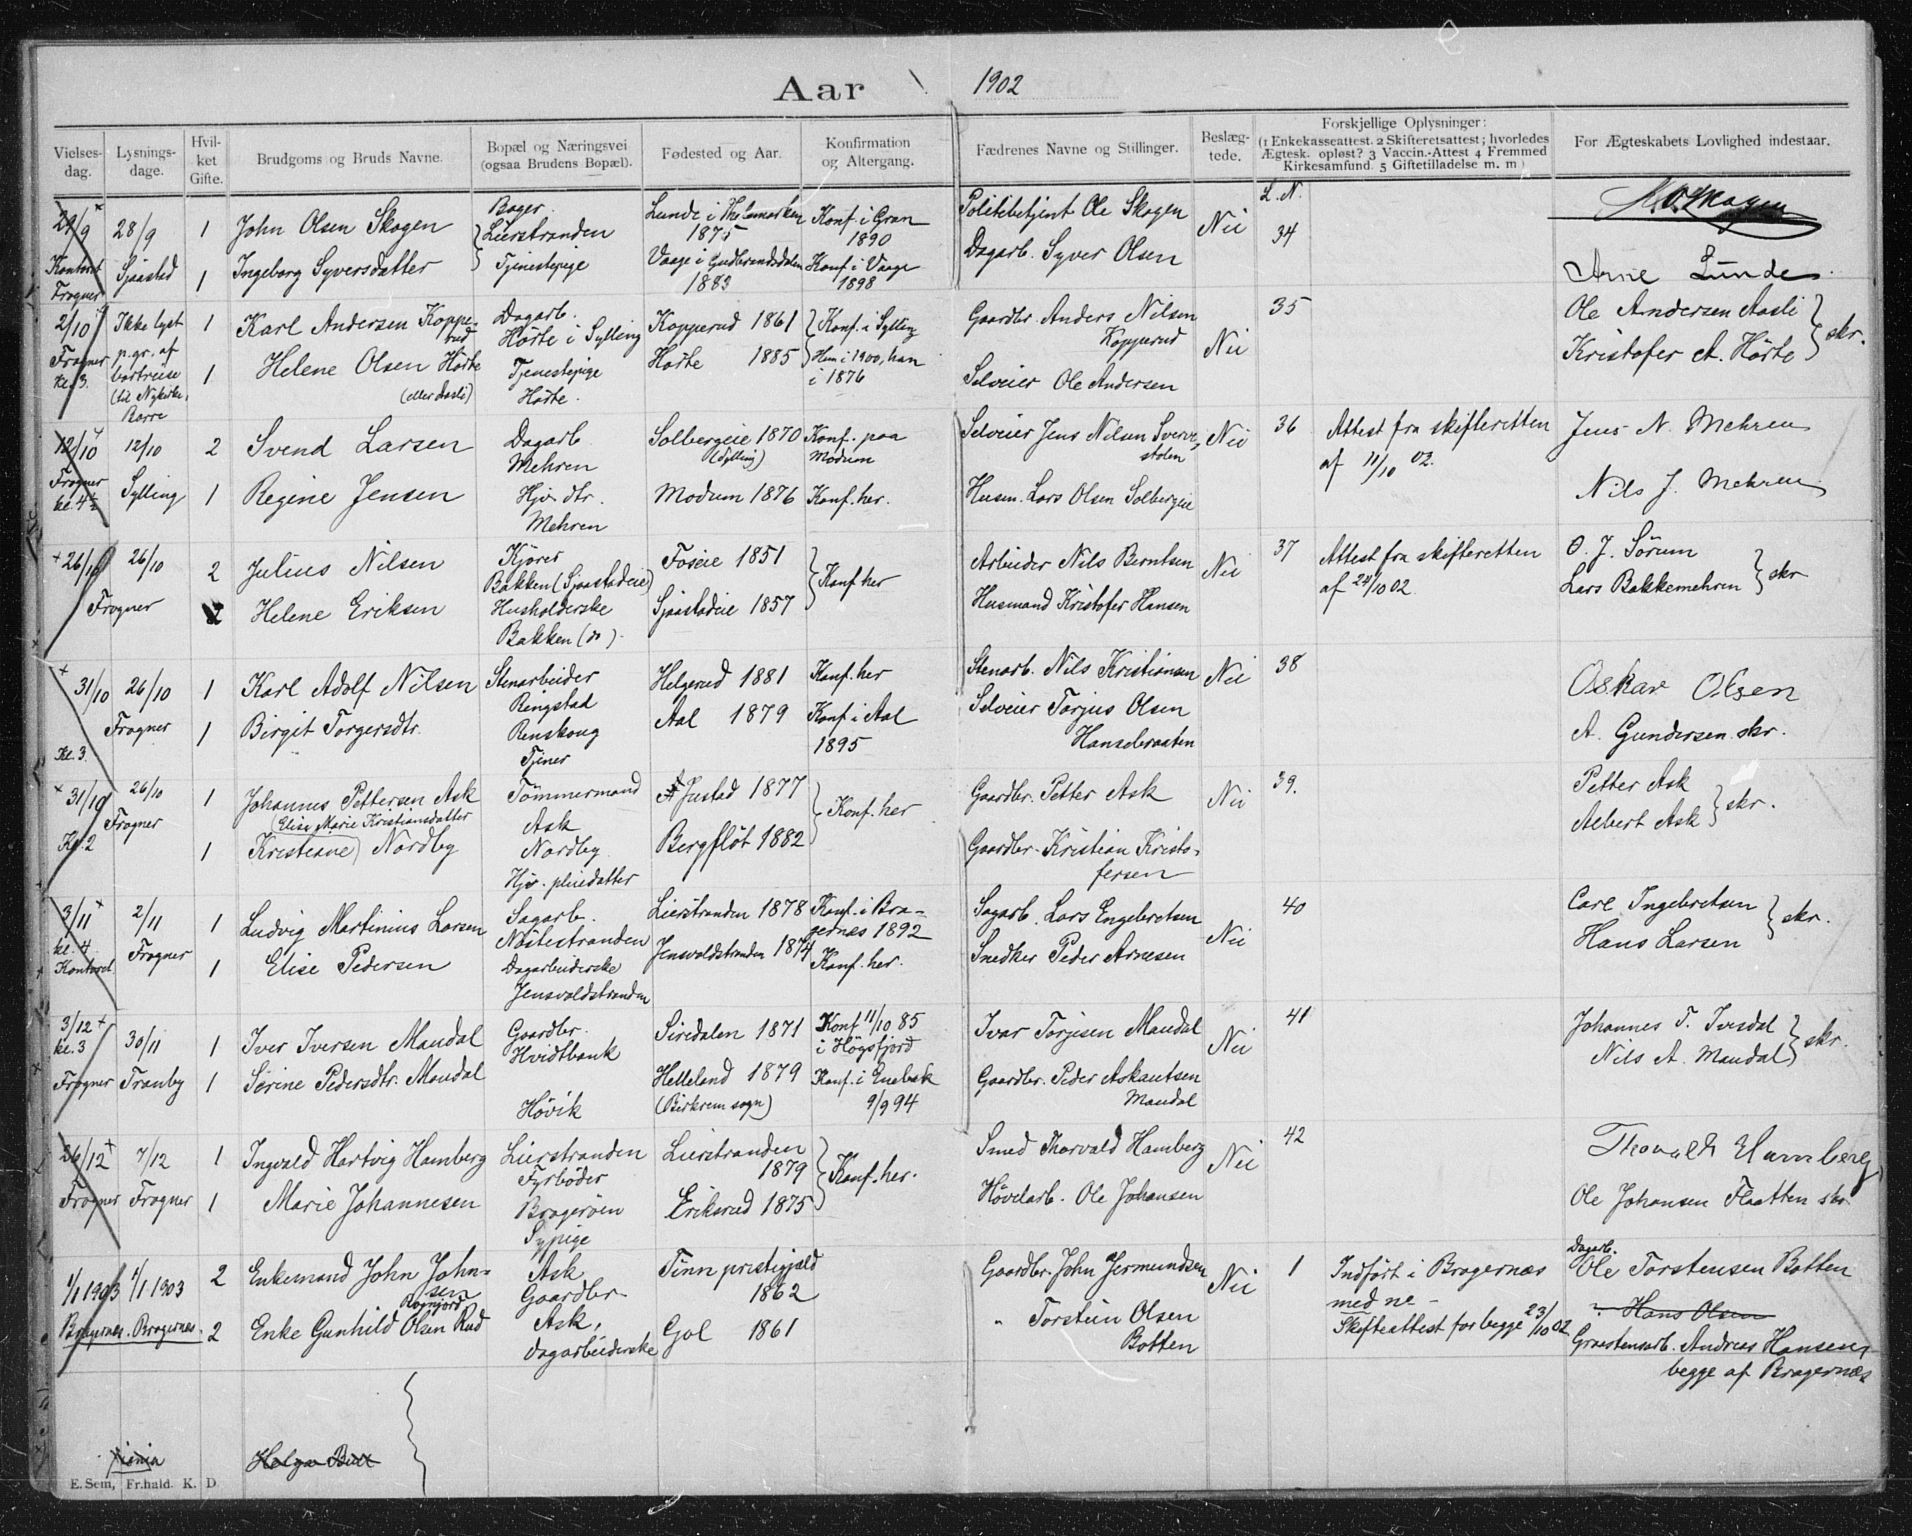 Aar 1902
Vielses-
dag.
Lysnings-
dage.
Hvil-
ket
Gifte.
Brudgoms og Bruds Navne.
Bopæl og Næringsvei
(ogsaa Brudens Bopæl).
Fødested og Aar.
Konfirmation
og Altergang.
Fædrenes Navne og Stillinger.
Beslæg-
tede.
Forskjellige Oplysninger:
(1 Enkekasseattest. 2 Skifteretsattest; hvorledes
Ægtesk. opløst? 3 Vaccin.-Attest 4 Fremmed
Kirkesamfund. 5 Giftetilladelse m. m)
For Ægteskabets Lovlighed indestaar.
29/9
Kontoret
Frogner
28/9
Sjaastad
1
1
John Olsen Skogen
Ingeborg Syversdatter
Bager
Lierstranden
Tjenestepige
Lunde i Thelemarken
1875
Vaage i Gudbrandsdalen
1883
Konf. i Gran
1890
Konf. i Vaage
1898
Politibetjent Ole Skogen
Dagarb. Syver Olsen
Nei
L. N.
34
Arne Lunde
2/10
Frogner
kl. 3.
Ikke lyst
p.gr. af
bortreise
(til Nykirke,
Borre
1
1
Karl Andersen Koppe-
rud
Helene Olsen Hörte
(eller Aasli)
Dagarb.
Hörte i Sylling
Tjenestepige
Hörte.
Kopperud 1861
Hörte 1885
Konf. i Sylling
Hun i 1900, han
i 1876
Gaardbr. Anders Nilsen
Kopperud
Selveier Ole Andersen
Nei
35
Ole Andersen Aasli
Kristofer A. Hörte
skr.
12/10
Frogner
kl. 4½
12/10
Sylling
2
1
Svend Larsen
Regine Jensen
Dagarb.
Mehren
Hjv. dtr.
Mehren
Solbergeie 1870
(Sylling)
Modum 1876
Konf. paa
Modum
Konf. her.
Selveier Jens Nilsen Sverve-
stolen
Husm. Lars Olsen Solbergeie
Nei
36
Attest fra skifteretten
af 11/10 02.
Jens N. Mehren
Nils J. Mehren
26/10
Frogner
26/10
2
Julius Nilsen
Helene Eriksen
Kjörer
Bakken (Sjaastadeie)
Husholderske
Bakken (do).
Foseie 1851
Sjaastadeie 1857
Konf. her
Arbeider Nils Berntsen
Husmand Kristofer Hansen
Nei
37
Attest fra skifteretten
af 24/10 02.
O. J. Sörum
Lars Bakkemehren
skr
31/10
Kl. 3.
26/10
Frogner
1
1
Karl Adolf Nilsen
Birgit Torgersdtr.
Stenarbeider
Ringstad
Renskoug
Tjener
Helgerud 1881
Aal 1879
Konf. her
Konf. i Aal
1895
Stenarb. Nils Kristiansen
Selveier Torjus Olsen
Nei
38
Oskar Olsen
A. Gundersen skr.
31/10
Kl. 2
26/10
Frogner
1
1
Johannes Pettersen Ask
(Elise Marie Kristiansdatter
Kristiane) Nordby
Tömmermand
Ask
Nordby
Hjv. pleiedatter
Justad 1877
Bergflöt 1882
Konf. her
Gaardbr. Petter Ask
Gaardbr. Kristian Kristo-
fersen
Nei
39.
Petter Ask
Albert Ask
skr.
3/11
kl. 4
Kontoret
2/11
Frogner
1
1
Ludvig Martinius Larsen
Elise Pedersen
Sagarb.
Nöstestranden
Dagarbeiderske
Jensvoldstranden
Lierstranden 1878
Jensvoldstranden 1874
Konf. i Bra-
gernæs 1892
Konf. her.
Sagarb. Lars Engebretsen
Snedker Peder Arnesen
Nei
40
Carl Ingebretsen
Hans Larsen
skr.
3/12
kl. 3
Frogner
30/11
Tranby
1
1
Iver Iversen Maudal
Sörine Pedersdtr. Maudal
Gaardbr.
Hvidtbank
Hövik
Siredalen 1871
Helleland 1879
(Birkrem sogn)
Konf 11/10 85
i Högsfjord
Konf. i Enebak
9/9 94
Ivar Torjisen Maudal
Gaardbr. Peder Askautsen
Maudal
Nei
41
Johannes T. Ivesdal
Nils A. Maudal
skr.
26/12
Frogner
7/12
Frogner
1
1
Ingvald Hartvig Hamberg
Marie Johannesen
Lierstranden
Fyrböder
Brageröen
Sypige
Lierstranden
1879
Eriksrud 1875
Konf. her.
Smed Thorvald Hamberg
Hövelarb. Ole Johansen
Nei
42
Thorvald Hamberg
Ole Johansen Flaatten skr.
1/1 1903
Bragernes.
1/1 1903
Bragernes.
2
2
Enkemand John John-
sen
Enke Gunhild Olsen Rud
Ask
Gaardbr.
Ask,
dagarbeiderske
Tinn prestegjeld
1862
Gol 1861
Gaardbr. John Jermundsen
" Torstein Olsen
Botten
Nei
1
Indfört i Bragernæs
med no –
Skifteattest for begge 23/10 02
Dagarb.
Ole Torstensen Botten
" Hans Olsen
Graastensarb. Andreas Hansen,
begge af Bragernæs
Helga Bull
E. Sem, Fr.hald. K. D